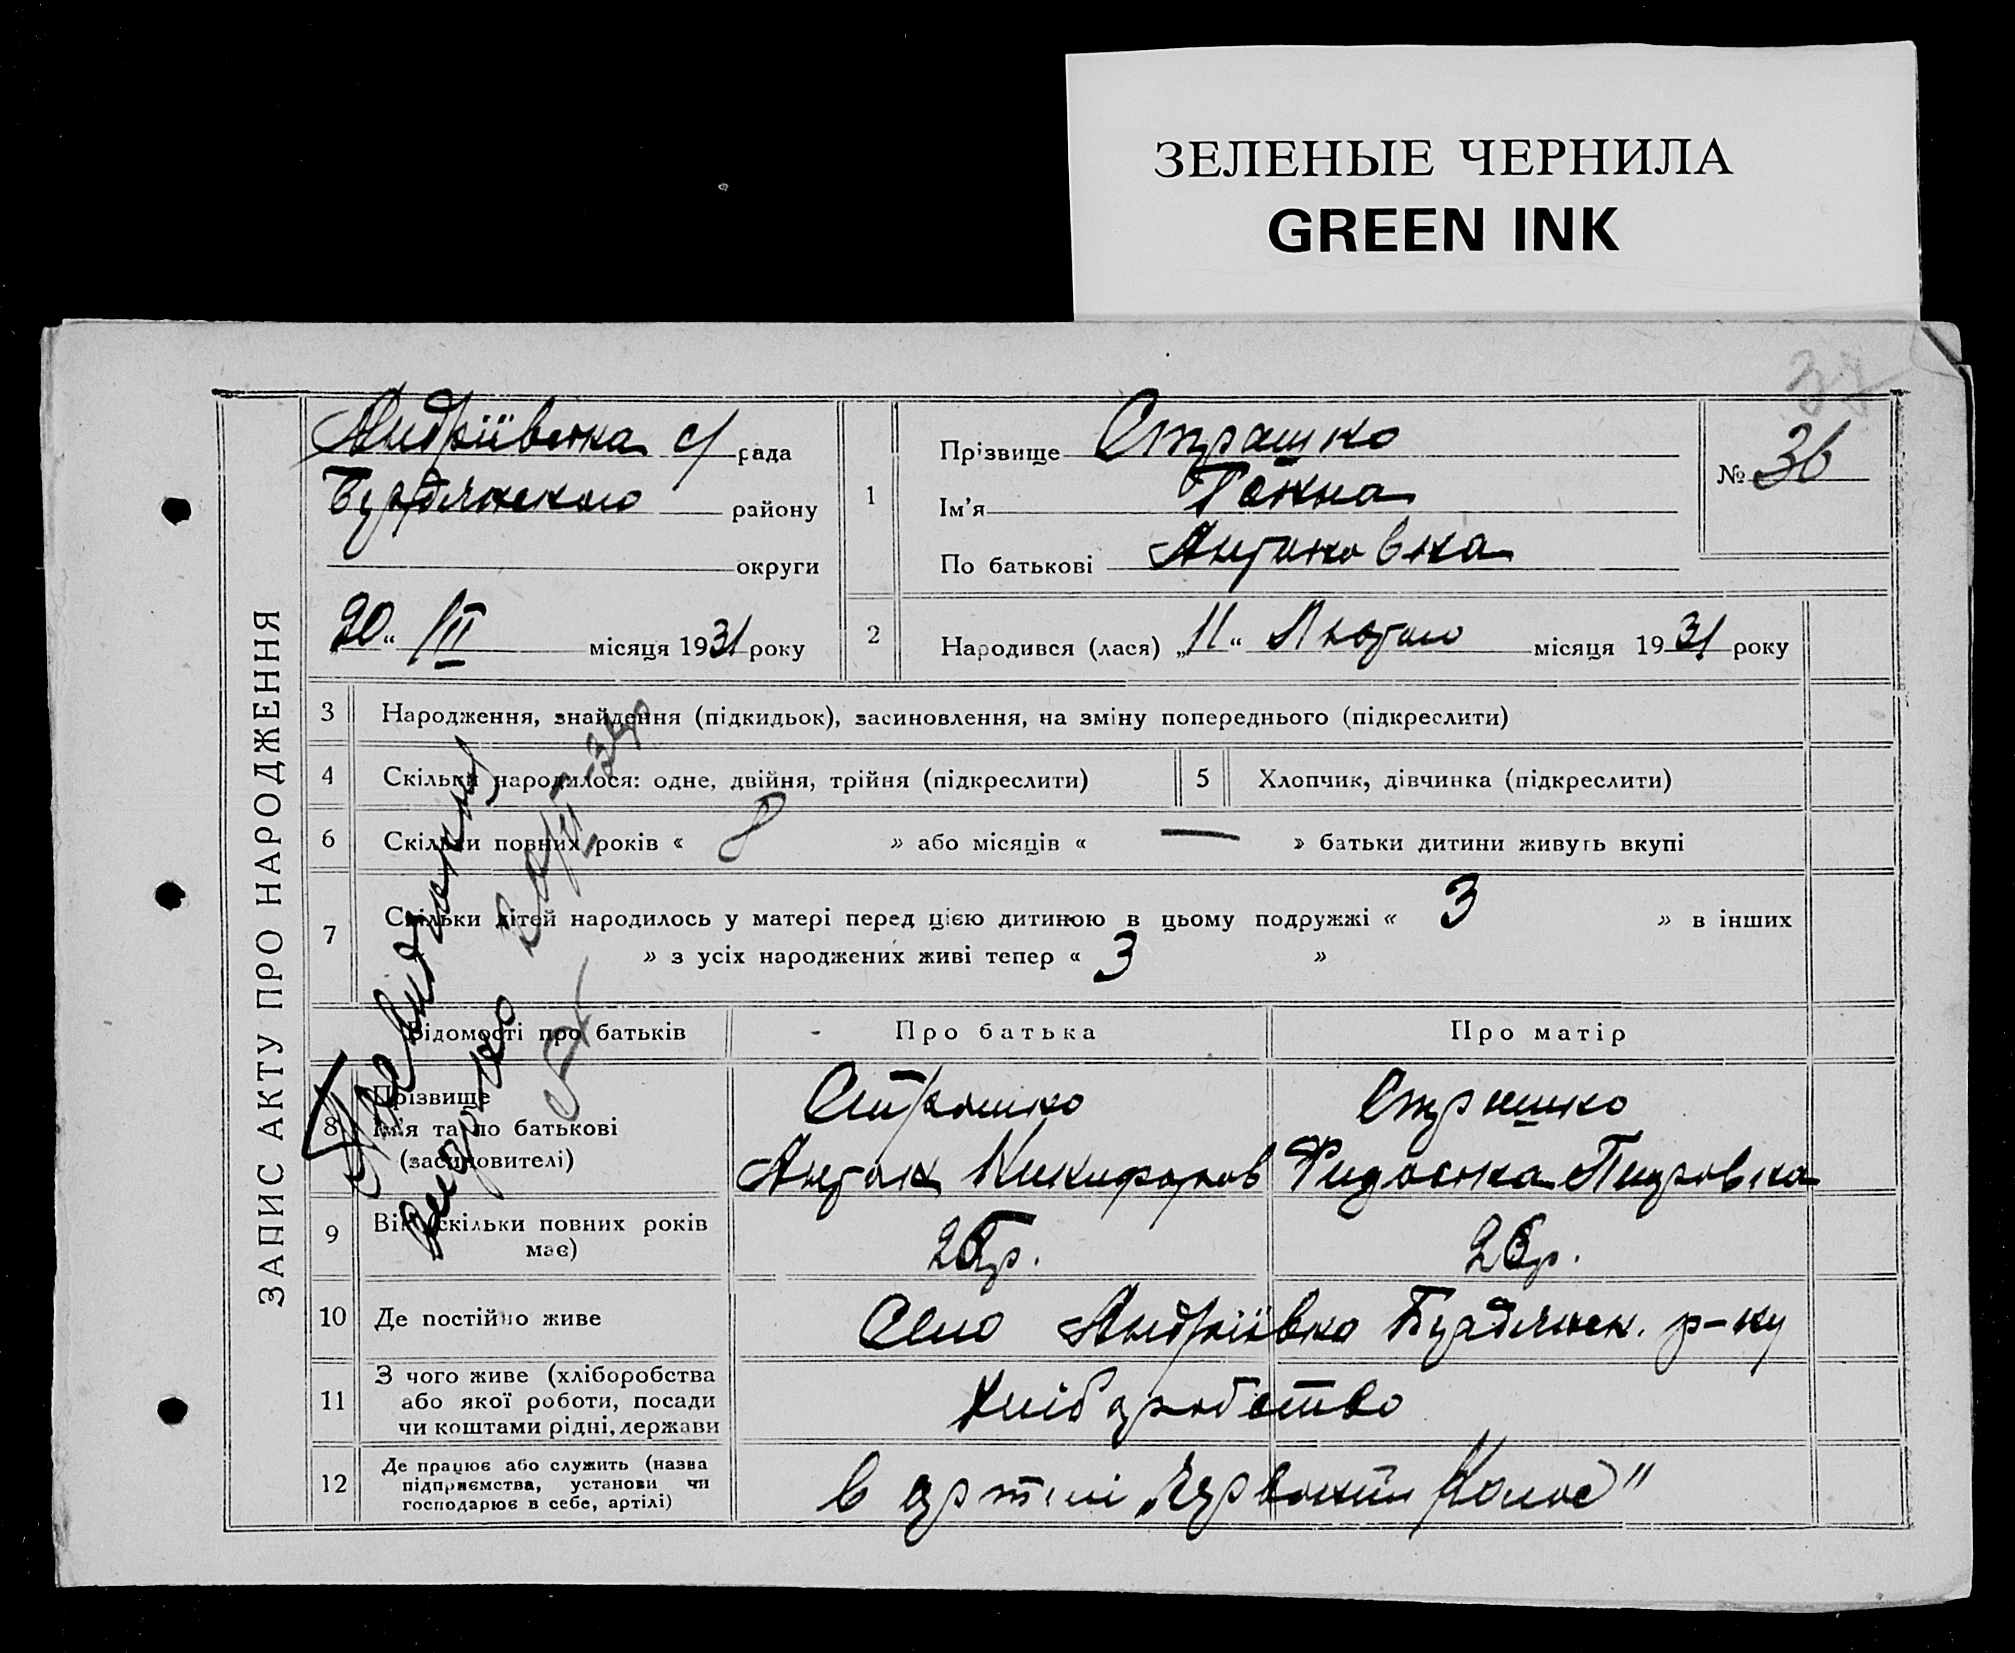 ЗЕЛЕНЫЕ ЧЕРНИЛА
GREEN INK
ЗАПИС АКТУ ПРО НАРОДЖЕННЯ
Андріївська с/ рада
району
округи
20 " III місяця 1931 року
1
Прізвище Страшко
Ім'я Ганна
По батькові Антоновна
№ 36
2
Народився (лася) „ 11 " Лютого місяця 1931 року
3 Народження, знайдення (підкидьок), засиновлення, на зміну попереднього (підкреслити)
4 Скільки народилося: одне, двійня, трійня (підкреслити)
5 Хлопчик, дівчинка (підкреслити)
6 Скільки повних років « 8 » або місяців « — » батьки дитини живуть вкупі
7 Скільки дітей народилось у матері перед цією дитиною в цьому подружжі « 3 » в інших
» з усіх народжених живі тепер « 3 »
Відомості про батьків
Про батька
Про матір
8 Прізвище
Ім'я та по батькові
(засиновителі)
Страшко
Антон Никифоров
Страшко
Петровна
9 Вік скільки повних років
має)
10 Де постійно живе
Село Андріївка р-ну
11 З чого живе (хліборобства
або якої роботи, посади
чи коштами рідні, держави
Хліборобство
12 Де працює або служить (назва
підприємства, установи чи
господарює в себе, артілі)
в артілі „Червоний Колос"